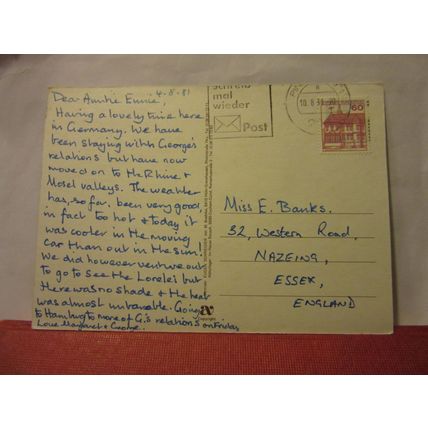 4.8.81
Dear Auntie Ennie,
Having a lovely time here
in Germany. We have
been staying with George's
relations but have now
moved on to the Rhine +
Mosel valleys. The weather
has, so far, been very good,
in fact too hot & today it
was cooler in the moving
car than out in the sun!
We did however venture out
to go to see the Lorelei but
there was no shade & the heat
was almost unbearable. Going
to Hamburg to more of G's relations on Friday
Love Margaret & George.
Schreib
mal
wieder
Post
10.8.
60
Miss E. Banks.
32, Western Road,
NAZEING,
ESSEX,
ENGLAND